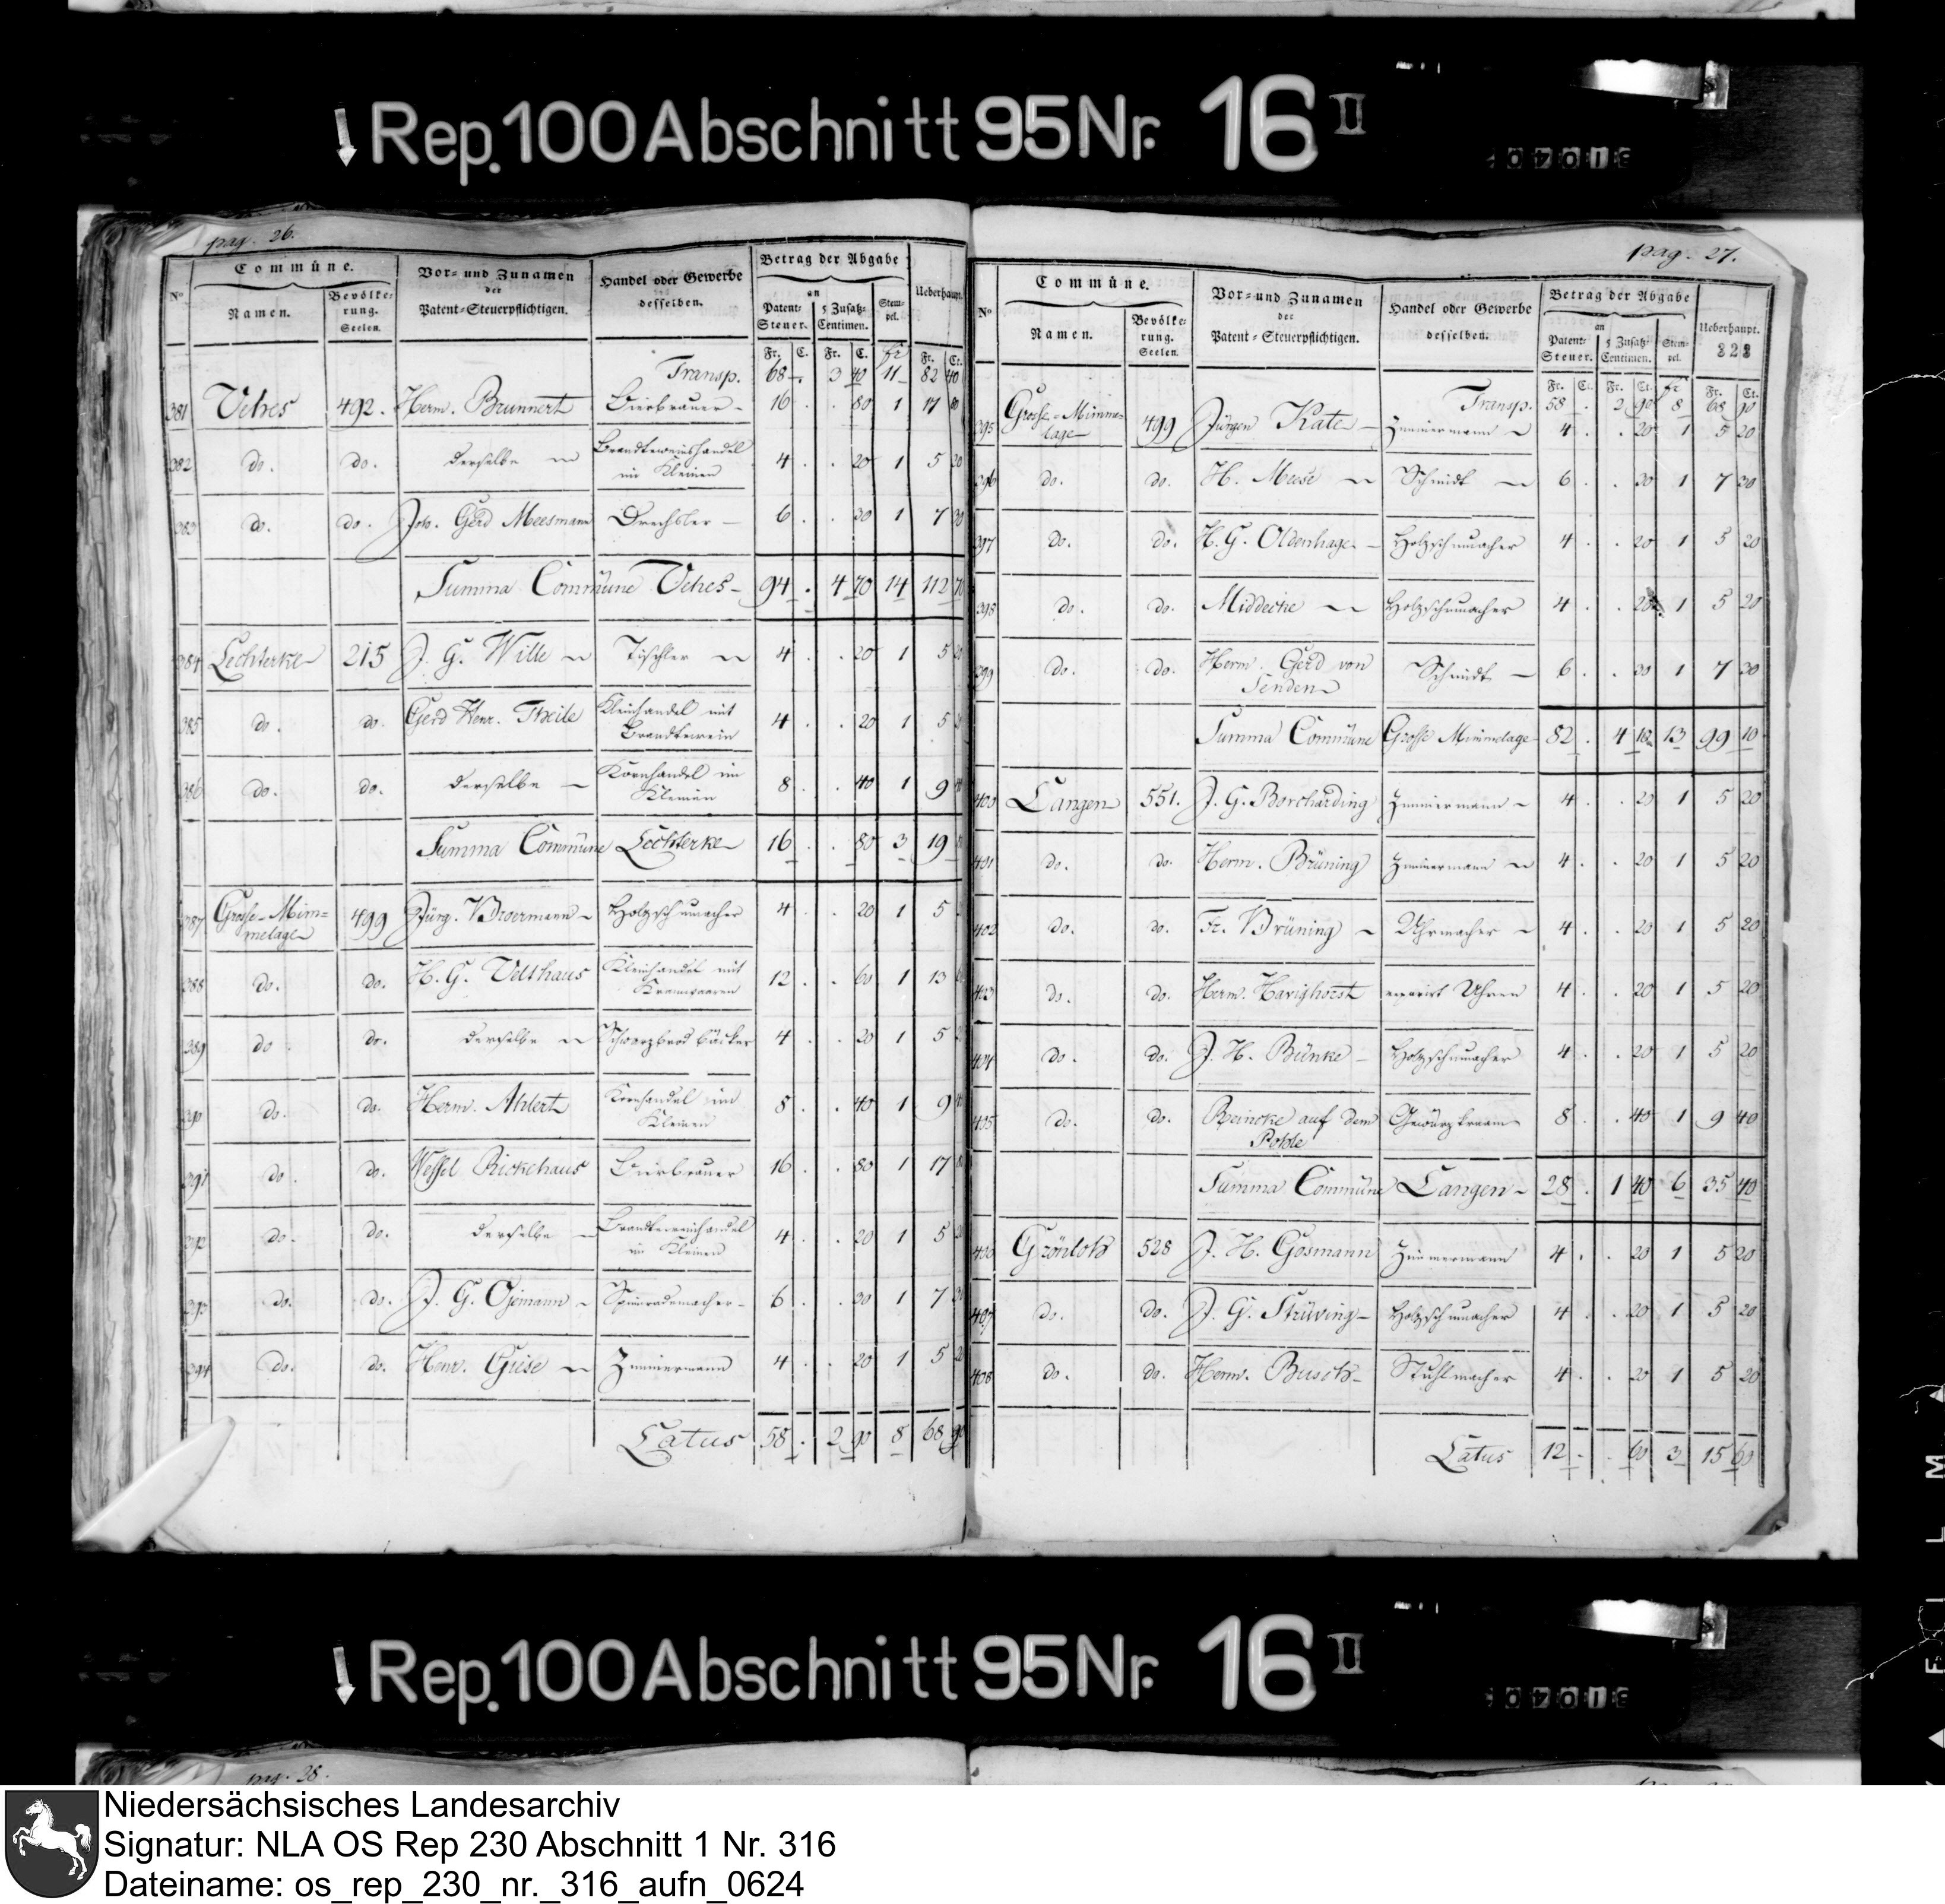 Rep. 100 Abschnitt 95 Nr. 16 II
pag. 26.
No Commüne. Vor- und Zunamen der Patent-Steuerpflichtigen. Handel oder Gewerbe desselben. Betrag der Abgabe an Ueberhaupt.
Namen. Bevölkerung. Seelen. Patent-Steuer. 5 Zusatz-Centimen. Stempel.
Fr. C. Fr. C. fr Fr. Ct.
Transp. 68 - 3 40 11 - 82 40
381 Vehs 492. Herm. Brunnert Bierbrauer - 16 . . 80 1 17 80
382 do. do. derselbe Brandtweinshandel im Kleinen 4 . . 20 1 5 20
383 do. do. Joh. Gerd Meesmann Drechsler - 6 . . 30 1 7 30
Summa Commüne Vehs - 94 . 4 70 14 112 70
384 Lechterke 215 J. G. Wille Tischler 4 . . 20 1 5 20
385 do. do. Gerd Henr. Theile Kleinhandel mit Brandtwein 4 . . 20 1 5
386 do. do. derselbe - Kornhandel im Kleinen 8 . . 40 1 9 40
Summa Commüne Lechterke 16 . . 80 3 19
387 Grosse-Mimmelage 499 Jürg. Broermann - Holzschumacher 4 . . 20 1 5
388 do. do. H. G. Velthaus Kleinhandel mit Kramwaaren 12 . . 60 1 13
389 do. do. derselbe Schwarzbrod bäcker 4 . . 20 1 5
390 do. do. Herm. Ahlert Kornhandel im Kleinen 8 . . 40 1 9
391 do. do. Wessel Rickehaus Bierbrauer 16 . . 80 1 17
392 do. do. derselbe - Brandtweinhandel im Kleinen 4 . . 20 1 5 20
393 do. do. J. G. Ojemann - Spinnrademacher - 6 . . 30 1 7 30
394 do. do. Henr. Giese Zimmermann 4 . . 20 1 5 20
Latus 58 . 2 90 8 68 90
pag. 27.
No Commüne. Vor- und Zunamen der Patent-Steuerpflichtigen. Handel oder Gewerbe desselben. Betrag der Abgabe an Ueberhaupt.
Namen. Bevölkerung. Seelen. Patent-Steuer. 5 Zusatz-Centimen. Stempel. 323
Fr. Ct. Fr. Ct. fr Fr. Ct.
Transp. 58 . 2 90 8 68 90
395 Grosse-Mimmelage 499 Jürgen Kate - Zimmermann 4 . . 20 1 5 20
396 do. do. H. Meese Schmidt 6 . . 30 1 7 30
397 do. do. H. G. Oldenhage - Holzschumacher 4 . . 20 1 5 20
398 do. do. Middecke Holzschumacher 4 . . 20 1 5 20
399 do. do. Herm. Gerd von Senden Schmidt - 6 . . 30 1 7 30
Summa Commüne Grosse Mimmelage 82 . 4 10 13 99 10
400 Langen 551. J. G. Borcharding Zimmermann - 4 . . 20 1 5 20
401 do. do. Herm. Brüning Zimmermann 4 . . 20 1 5 20
402 do. do. Fr. Brüning - Uhrmacher - 4 . . 20 1 5 20
403 do. do. Herm. Havighorst reparirt Uhren 4 . . 20 1 5 20
404 do. do. J. H. Bünke - Holzschumacher 4 . . 20 1 5 20
405 do. do. Reincke auf dem Pohle Gewürzkraam 8 . . 40 1 9 40
Summa Commüne Langen - 28 . 1 40 6 35 40
406 Grönloh 528 J. H. Gosmann Zimmermann 4 . . 20 1 5 20
407 do. do. J. G. Strüving - Holzschumacher 4 . . 20 1 5 20
408 do. do. Herm. Busch - Stuhlmacher 4 . . 20 1 5 20
Latus 12 - . 60 3 15 60
Rep. 100 Abschnitt 95 Nr. 16 II
pag. 28.
Niedersächsisches Landesarchiv
Signatur: NLA OS Rep 230 Abschnitt 1 Nr. 316
Dateiname: os_rep_230_nr._316_aufn_0624